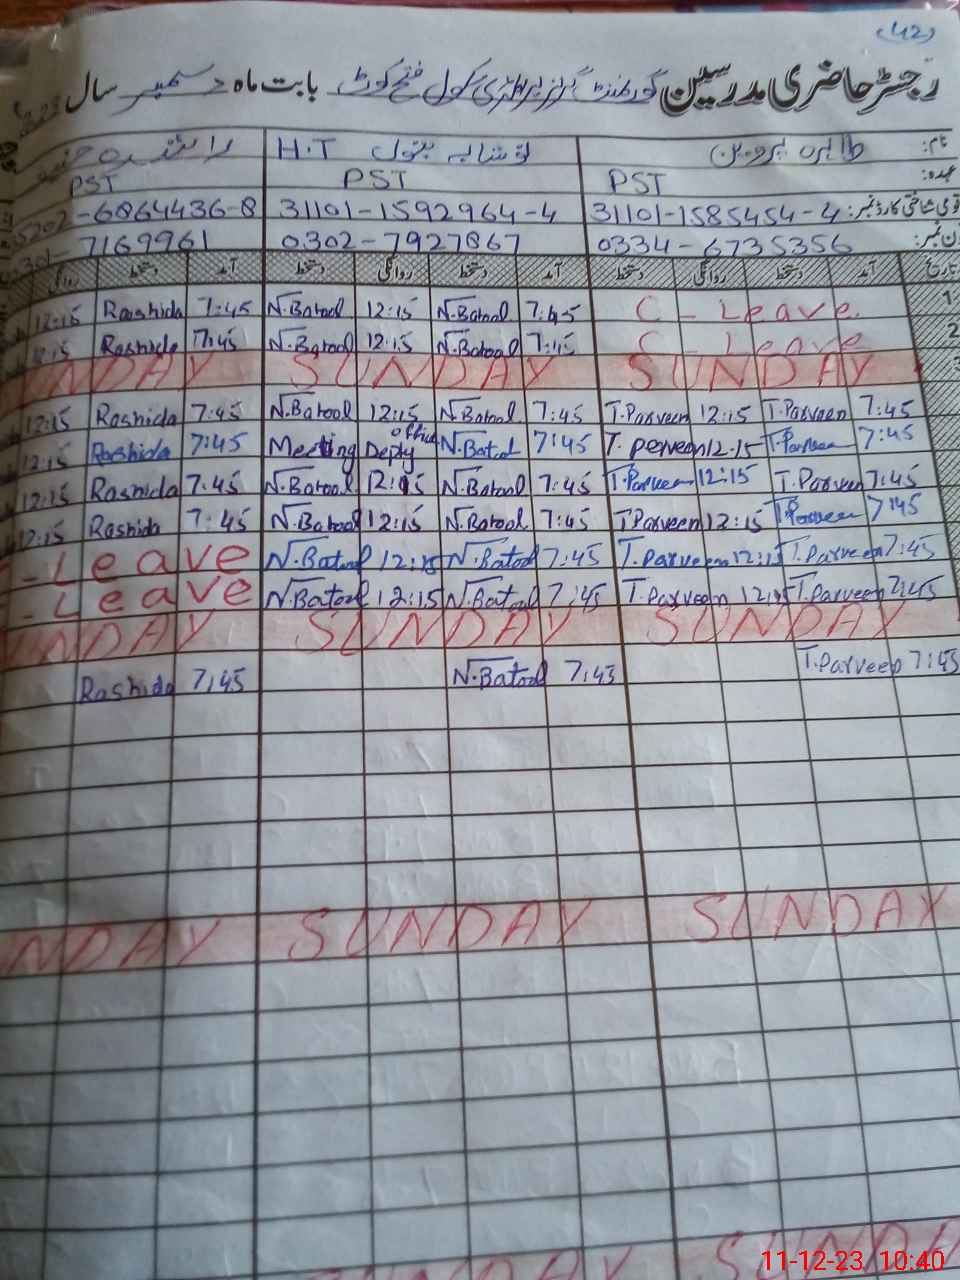 (42)
رجسٹر حاضری مدرسین گورنمنٹ گرلز پرائمری سکول فتح کوٹ بابت ماہ دسمبر سال
نام: طاہرہ پروین نوشابہ بتول H.T
عہدہ: PST PST PST
قومی شناختی کارڈ نمبر: 31101-1585454-4 31101-1592964-4 -6864436-8
ن نمبر: 0334-6735356 0302-7927867 7169961
تاریخ آمد دستخط روانگی دستخط آمد دستخط روانگی دستخط آمد دستخط روانگی
1 C-Leave 7:45 N.Batool 12:15 N.Batool 7:45 Rashida 12:15
2 C-Leave 7:45 N.Batool 12:15 N.Batool 7:45 Rashida 12:15
SUNDAY SUNDAY NDAY
7:45 T.Parveen 12:15 T.Parveen 7:45 N.Batool 12:15 N.Batool 7:45 Rashida 12:15
7:45 T.Parveen 12:15 T.perveen 7:45 N.Batool Meeting Depty office 7:45 Rashida 12:15
7:45 T.Parveen 12:15 T.Parveen 7:45 N.Batool 12:15 N.Batool 7:45 Rashida 12:15
7:45 T.Parveen 12:15 T.Parveen 7:45 N.Batool 12:15 N.Batool 7:45 Rashida 12:15
7:45 T.Parveen 12:15 T.Parveen 7:45 N.Batool 12:15 N.Batool -Leave
7:45 T.Parveen 12:15 T.Parveen 7:45 N.Batool 12:15 N.Batool -Leave
SUNDAY SUNDAY NDAY
7:45 T.Parveen 7:45 N.Batool 7:45 Rashida
SUNDAY SUNDAY NDAY
11-12-23 10:40